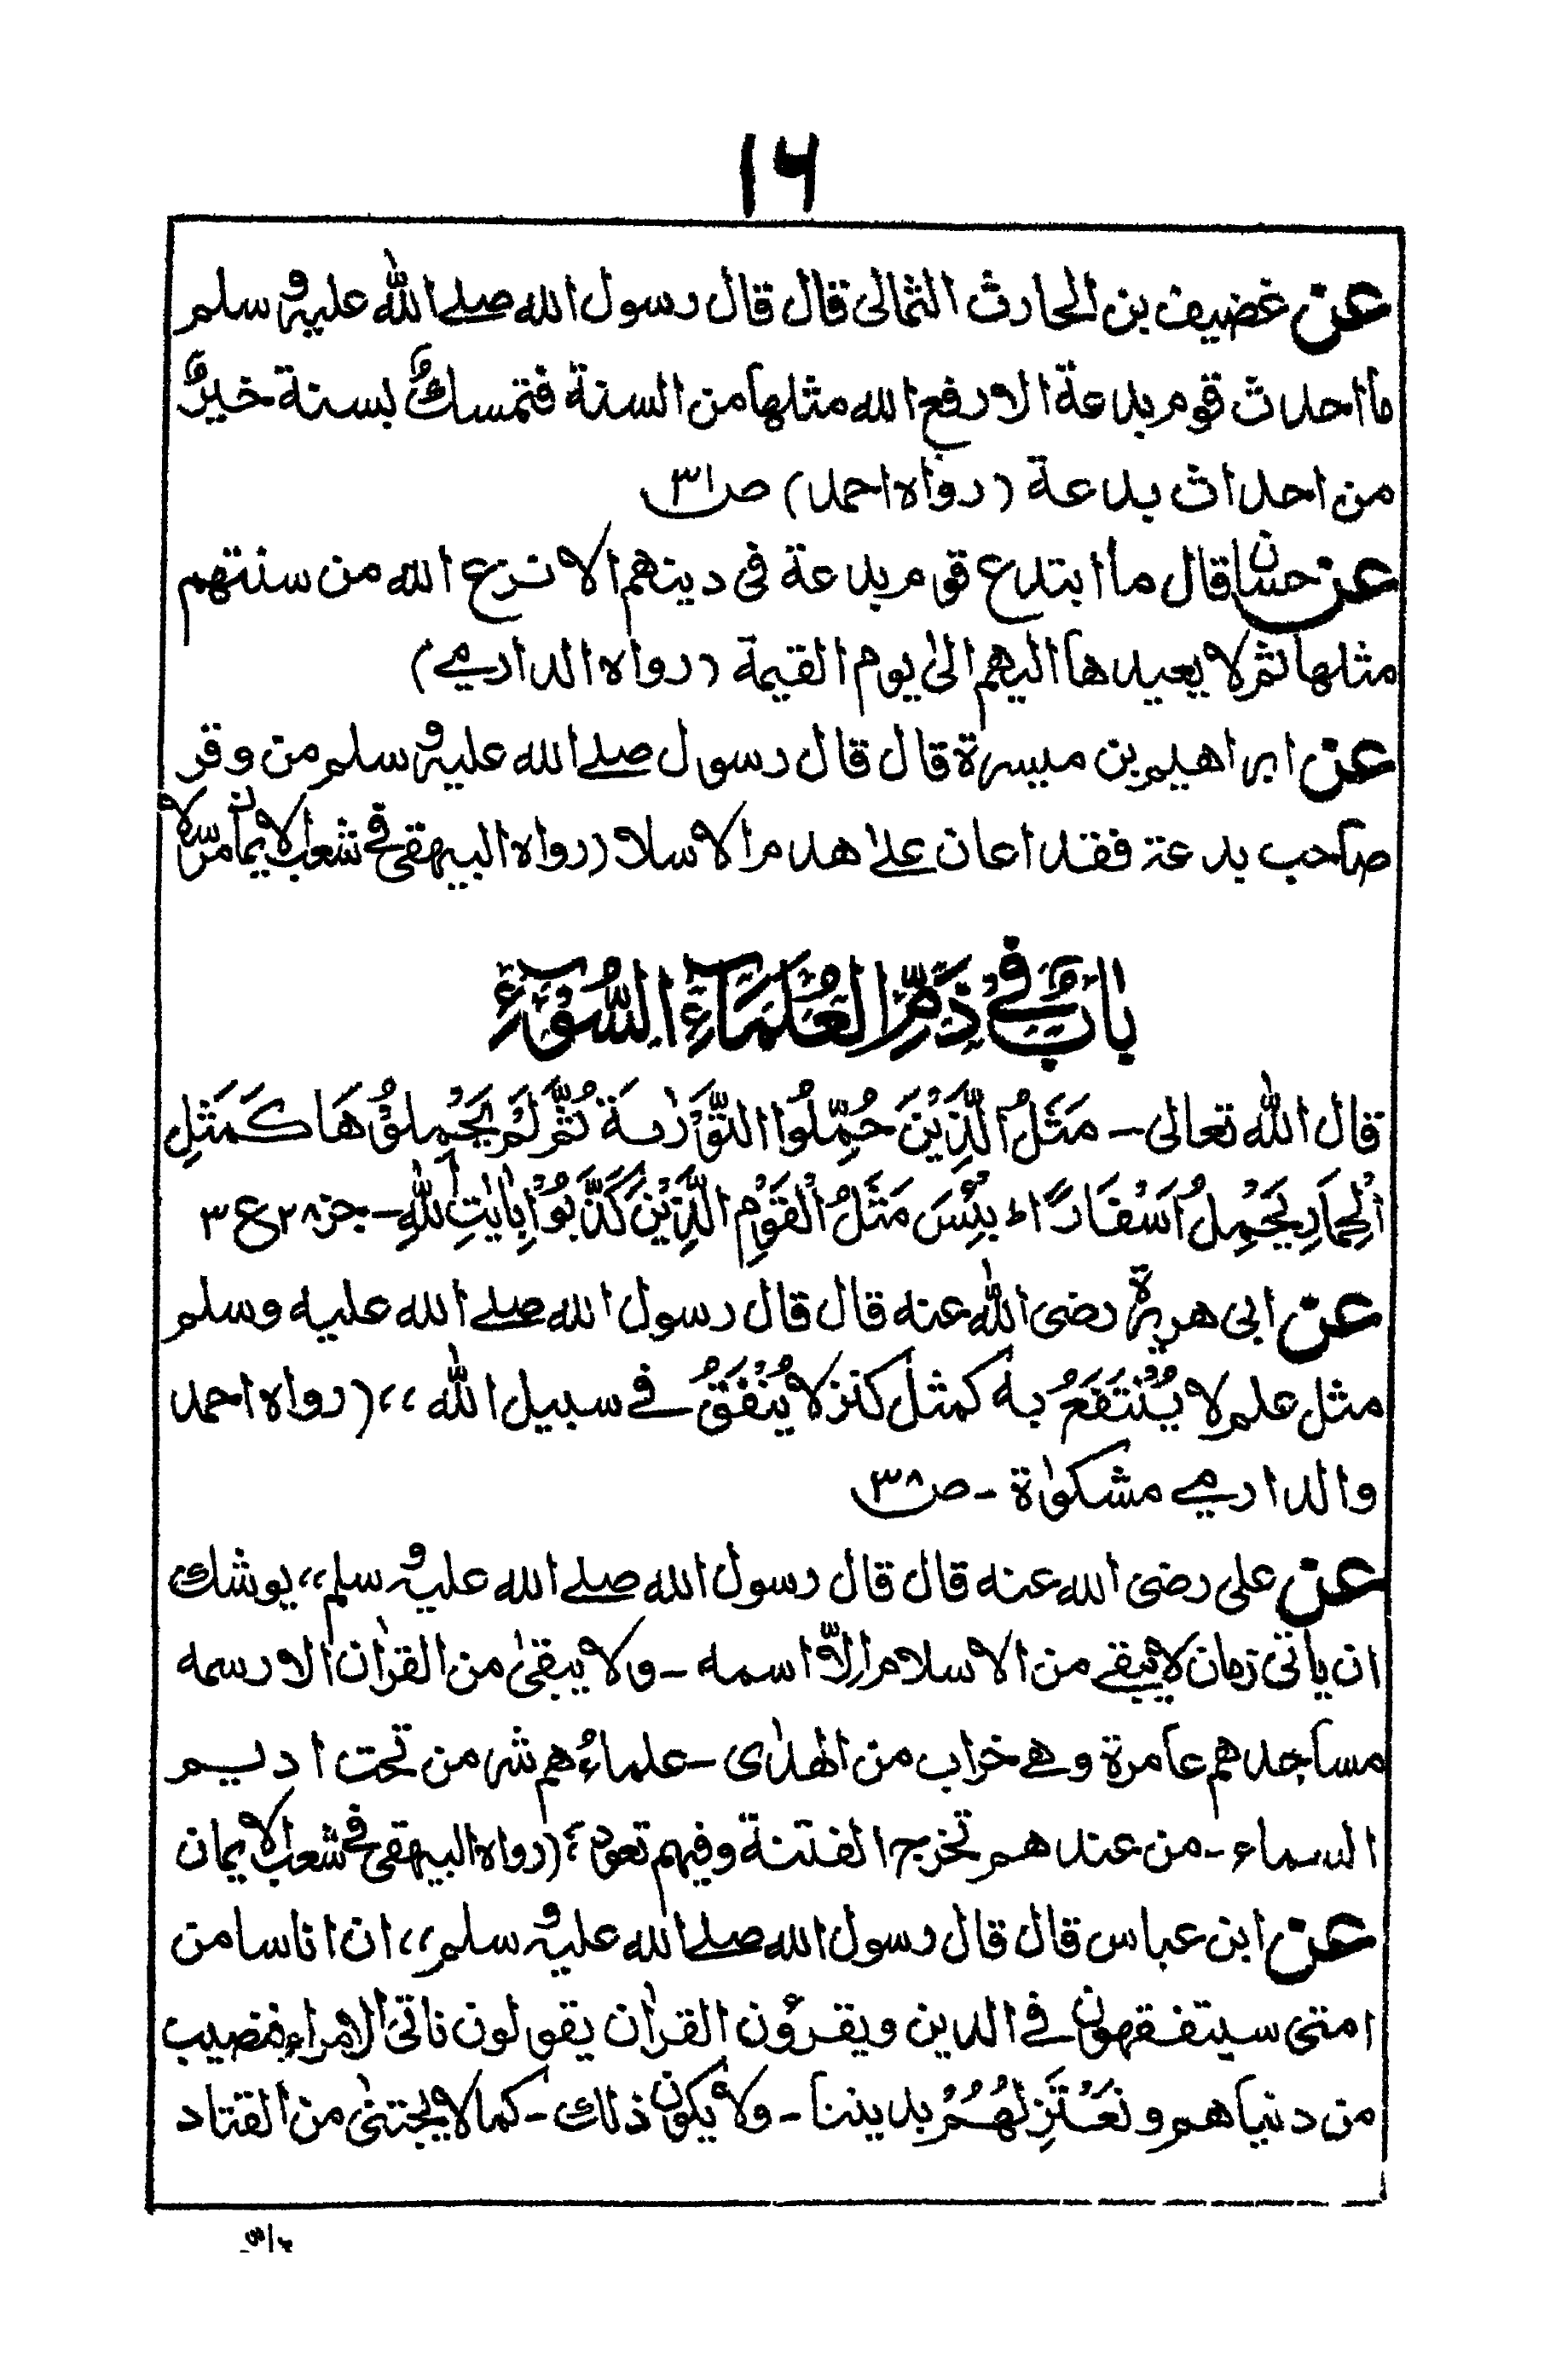 ۱۶
عن غضیف بن الحارث الثمالی قال قال رسول الله صلے الله علیہ و سلم
ما احدث قوم بدعة الا رفع الله مثلها من السنة فتمسكٌ بسنة خیرٌ
من احداث بدعة (رواه احمد) ص۳۱
عن حسان قال ما ابتدع قوم بدعة فی دینهم الا نزع الله من سنتهم
مثلها ثم لا یعیدها الیهم الیٰ یوم القیمة (رواه الدارمے)
عن ابراهیم بن میسرة قال قال رسول صلے الله علیہ و سلم من وقر
صاحب بدعة فقد اعان علے هدم الاسلا (رواه البیهقی فے شعب الایمان مرسلا
بَابٌ فِے ذَمِّ الْعُلَمَآءِ السُّوْٓءِ
قال الله تعالی - مَثَلُ الَّذِیْنَ حُمِّلُوا التَّوْرٰىةَ ثُمَّ لَمْ یَحْمِلُوْهَا كَمَثَلِ
الْحِمَارِ یَحْمِلُ اَسْفَارًا ط بِئْسَ مَثَلُ الْقَوْمِ الَّذِیْنَ كَذَّبُوْا بِاٰیٰتِ اللّٰهِ - جز ۲۸ ع ۳
عن ابی هریرة رضی الله عنه قال قال رسول الله صلے الله علیه وسلم
مثل علم لا یُنْتَفَعُ به كمثل كنز لا یُنْفَقُ فے سبیل الله ،، (رواه احمد
والدارمے مشكوٰة - ص۳۸
عن علی رضی الله عنه قال قال رسول الله صلے الله علیہ و سلم ،، یوشك
ان یاتی زمان لا یبقے من الاسلام اِلّا اسمه - ولا یبقیٰ من القراٰن الا رسمه
مساجدهم عامرة وهے خراب من الهدٰی - علماءُهم شر من تحت ادیم
السماء - من عندهم تخرج الفتنة وفیهم تعود ،، (رواه البیهقی فے شعب الایمان
عن ابن عباس قال قال رسول الله صلے الله علیہ و سلم ،، ان اناسا من
امتی سیتفقهون فے الدین ویقرؤن القراٰن یقولون ناتی الامراء فنصیب
من دنیاهم و نَعْتَزِلُهُمْ بدیننا - ولا یكون ذلك - كما لا یجتنیٰ من القتاد